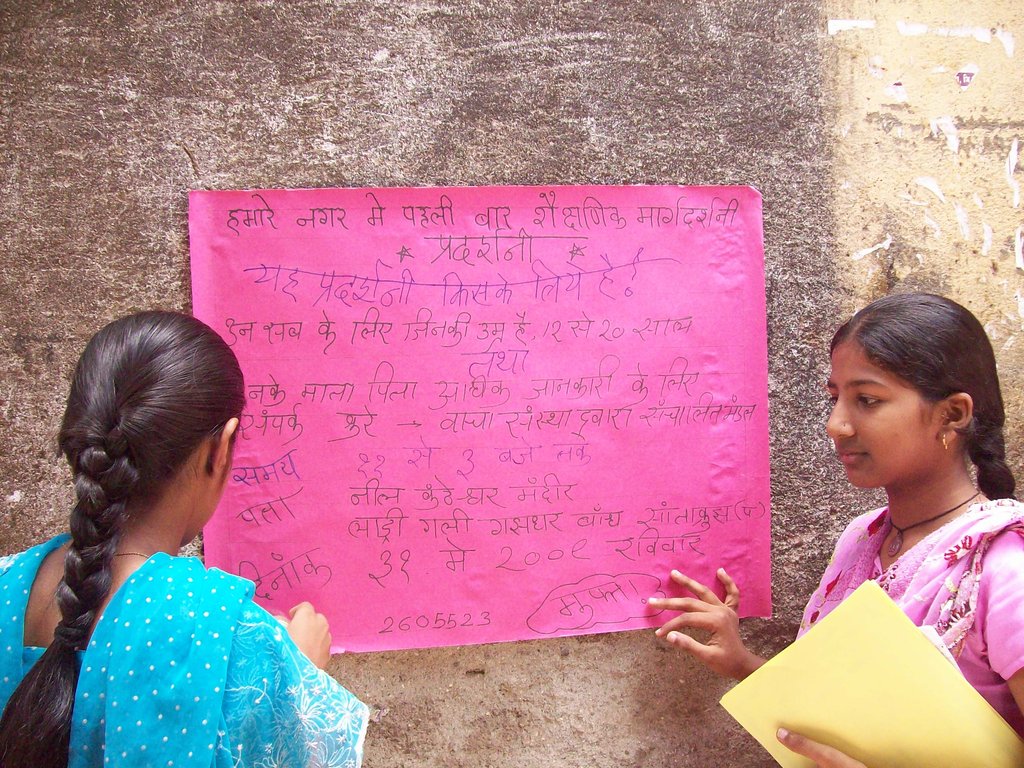 हमारे नगर मे पहली बार शैक्षणिक मार्गदर्शनी
* प्रदर्शनी *
यह प्रदर्शनी किसके लिये है?
उन सब के लिए जिनकी उम्र है, १२ से २० साल
तथा
नके माता पिता अधिक जानकारी के लिए
संपर्क करे → वाचा संस्था द्वारा संचालित मंडल
समय ११ से ३ बजे तक
पता नील कंठेश्वर मंदीर
गली गझधर बाँध सांताक्रुझ (प)
दिनांक ३१ मे २००९ रविवार
2605523 मुफ्त